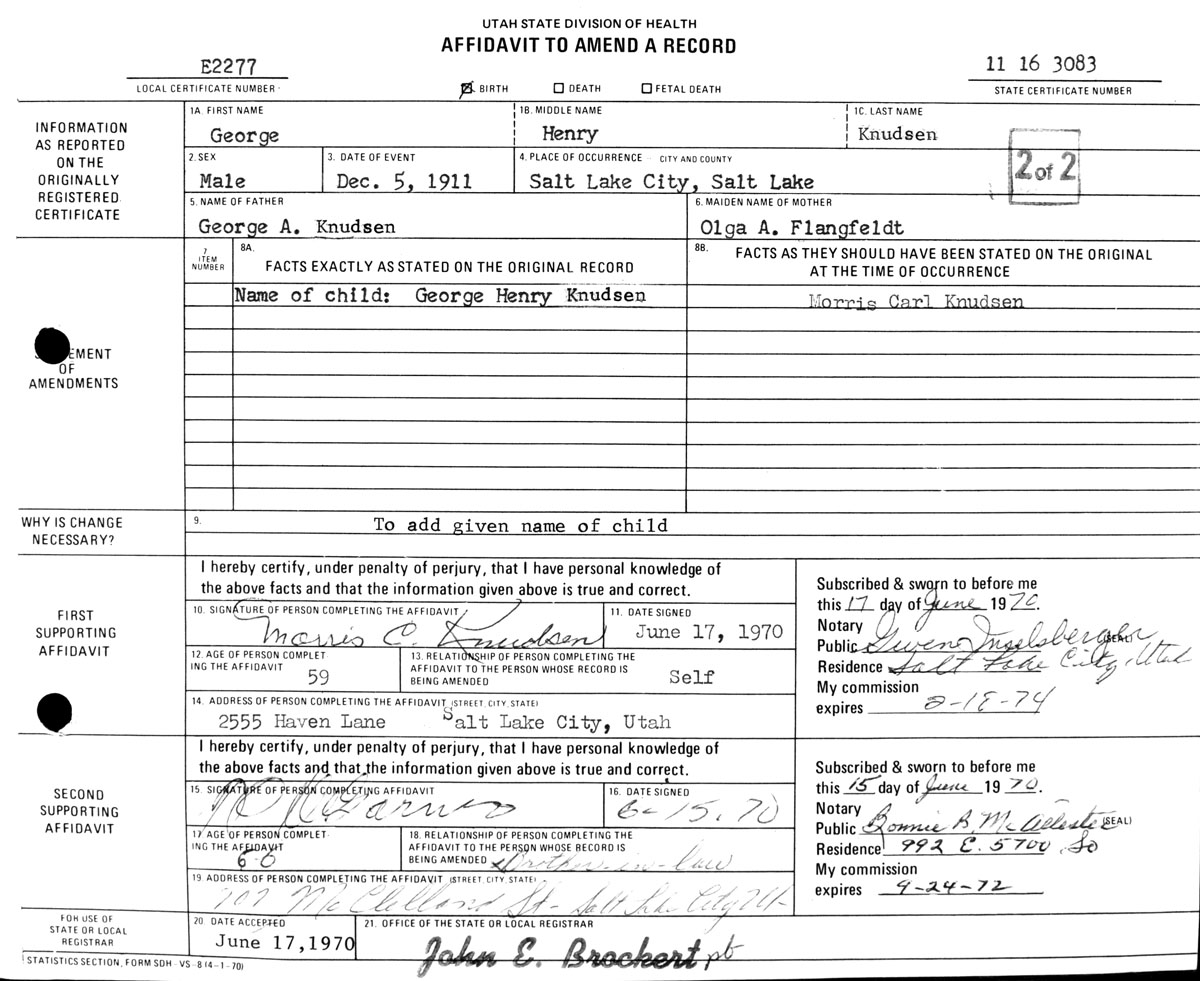 UTAH STATE DIVISION OF HEALTH
AFFIDAVIT TO AMEND A RECORD
E2277
LOCAL CERTIFICATE NUMBER
BIRTH DEATH FETAL DEATH
11 16 3083
STATE CERTIFICATE NUMBER
INFORMATION
AS REPORTED
ON THE
ORIGINALLY
REGISTERED
CERTIFICATE
1A. FIRST NAME
George
1B. MIDDLE NAME
Henry
1C. LAST NAME
Knudsen
2. SEX
Male
3. DATE OF EVENT
Dec. 5, 1911
4. PLACE OF OCCURRENCE - CITY AND COUNTY
Salt Lake City, Salt Lake
2 of 2
5. NAME OF FATHER
George A. Knudsen
6. MAIDEN NAME OF MOTHER
Olga A. Flangfeldt
EMENT
OF
AMENDMENTS
7
ITEM
NUMBER
8A.
FACTS EXACTLY AS STATED ON THE ORIGINAL RECORD
8B.
FACTS AS THEY SHOULD HAVE BEEN STATED ON THE ORIGINAL
AT THE TIME OF OCCURRENCE
Name of child: George Henry Knudsen
Morris Carl Knudsen
WHY IS CHANGE
NECESSARY?
9.
To add given name of child
FIRST
SUPPORTING
AFFIDAVIT
I hereby certify, under penalty of perjury, that I have personal knowledge of
the above facts and that the information given above is true and correct.
10. SIGNATURE OF PERSON COMPLETING THE AFFIDAVIT
Morris C. Knudsen
11. DATE SIGNED
June 17, 1970
12. AGE OF PERSON COMPLET
ING THE AFFIDAVIT
59
13. RELATIONSHIP OF PERSON COMPLETING THE
AFFIDAVIT TO THE PERSON WHOSE RECORD IS
BEING AMENDED
Self
14. ADDRESS OF PERSON COMPLETING THE AFFIDAVIT (STREET, CITY, STATE)
2555 Haven Lane Salt Lake City, Utah
Subscribed & sworn to before me
this 17 day of June 1970.
Notary
Public Gwen Ingelsberger (SEAL)
Residence Salt Lake City, Utah
My commission
expires 2-18-74
SECOND
SUPPORTING
AFFIDAVIT
I hereby certify, under penalty of perjury, that I have personal knowledge of
the above facts and that the information given above is true and correct.
15. SIGNATURE OF PERSON COMPLETING AFFIDAVIT
16. DATE SIGNED
6-15.70
17. AGE OF PERSON COMPLET
ING THE AFFIDAVIT
66
18. RELATIONSHIP OF PERSON COMPLETING THE
AFFIDAVIT TO THE PERSON WHOSE RECORD IS
BEING AMENDED
Brother-in-law
19. ADDRESS OF PERSON COMPLETING THE AFFIDAVIT (STREET, CITY, STATE)
McClelland St - Salt Lake City Ut-
Subscribed & sworn to before me
this 15 day of June 1970.
Notary
Public Bonnie B. McAllester (SEAL)
Residence 992 E. 5700 So
My commission
expires 9-24-72
FOR USE OF
STATE OR LOCAL
REGISTRAR
20. DATE ACCEPTED
June 17,1970
21. OFFICE OF THE STATE OR LOCAL REGISTRAR
John E. Brockert pt
STATISTICS SECTION, FORM SDH-VS-8 (4-1-70)